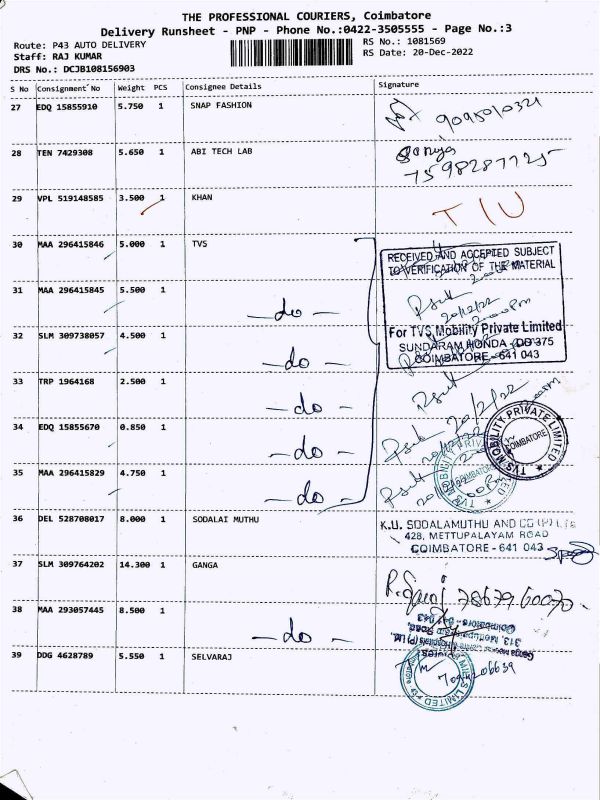 THE PROFESSIONAL COURIERS, Coimbatore
Delivery Runsheet - PNP - Phone No.:0422-3505555 - Page No.:3
Route: P43 AUTO DELIVERY RS No.: 1081569
Staff: RAJ KUMAR RS Date: 20-Dec-2022
DRS No.: DCJB108156903
S No Consignment No Weight PCS Consignee Details Signature
27 EDQ 15855910 5.750 1 SNAP FASHION 9095010321
28 TEN 7429308 5.650 1 ABI TECH LAB
7598287725
29 VPL 519148585 3.500 1 KHAN T/U
30 MAA 296415846 5.000 1 TVS
RECEIVED AND ACCEPTED SUBJECT
TO VERIFICATION OF THE MATERIAL
31 MAA 296415845 5.500 1
- do -
For TVS Mobility Private Limited
32 SLM 309738057 4.500 1
SUNDARAM HONDA - DB 375
COIMBATORE - 641 043
- do -
33 TRP 1964168 2.500 1
- do -
34 EDQ 15855670 0.850 1
- do -
TVS MOBILITY PRIVATE LIMITED
COIMBATORE
35 MAA 296415829 4.750 1
- do -
36 DEL 528708017 8.000 1 SODALAI MUTHU
K.U. SODALAMUTHU AND CO (P) LTD
428, METTUPALAYAM ROAD
COIMBATORE - 641 043
37 SLM 309764202 14.300 1 GANGA
38 MAA 293057445 8.500 1
- do -
39 DDG 4628789 5.550 1 SELVARAJ